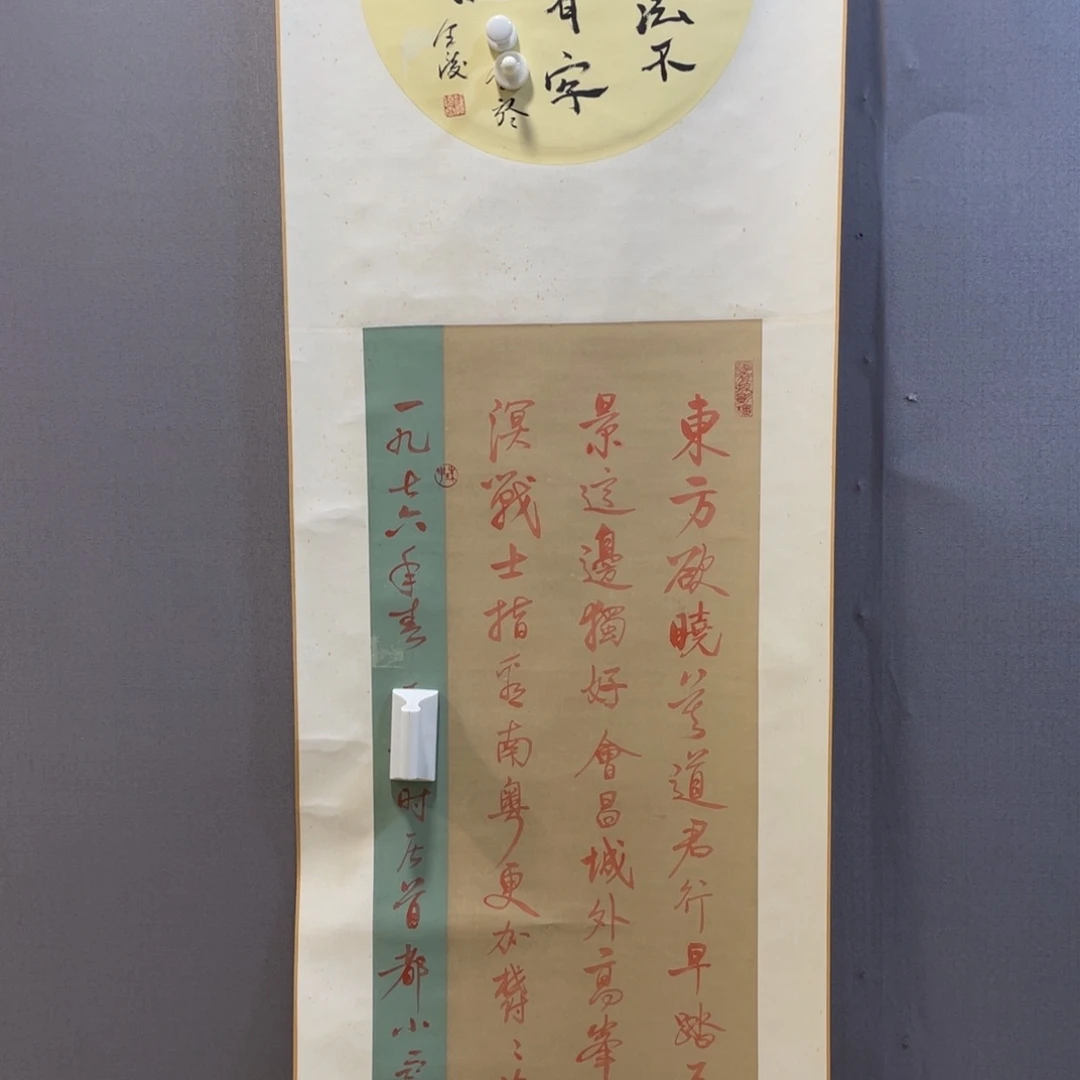 法不
有字
於
東方欲曉莫道君行早踏
景這邊獨好會昌城外高峯
溟戰士指看南粤更加欝〻
一九七六年春
时居首都小